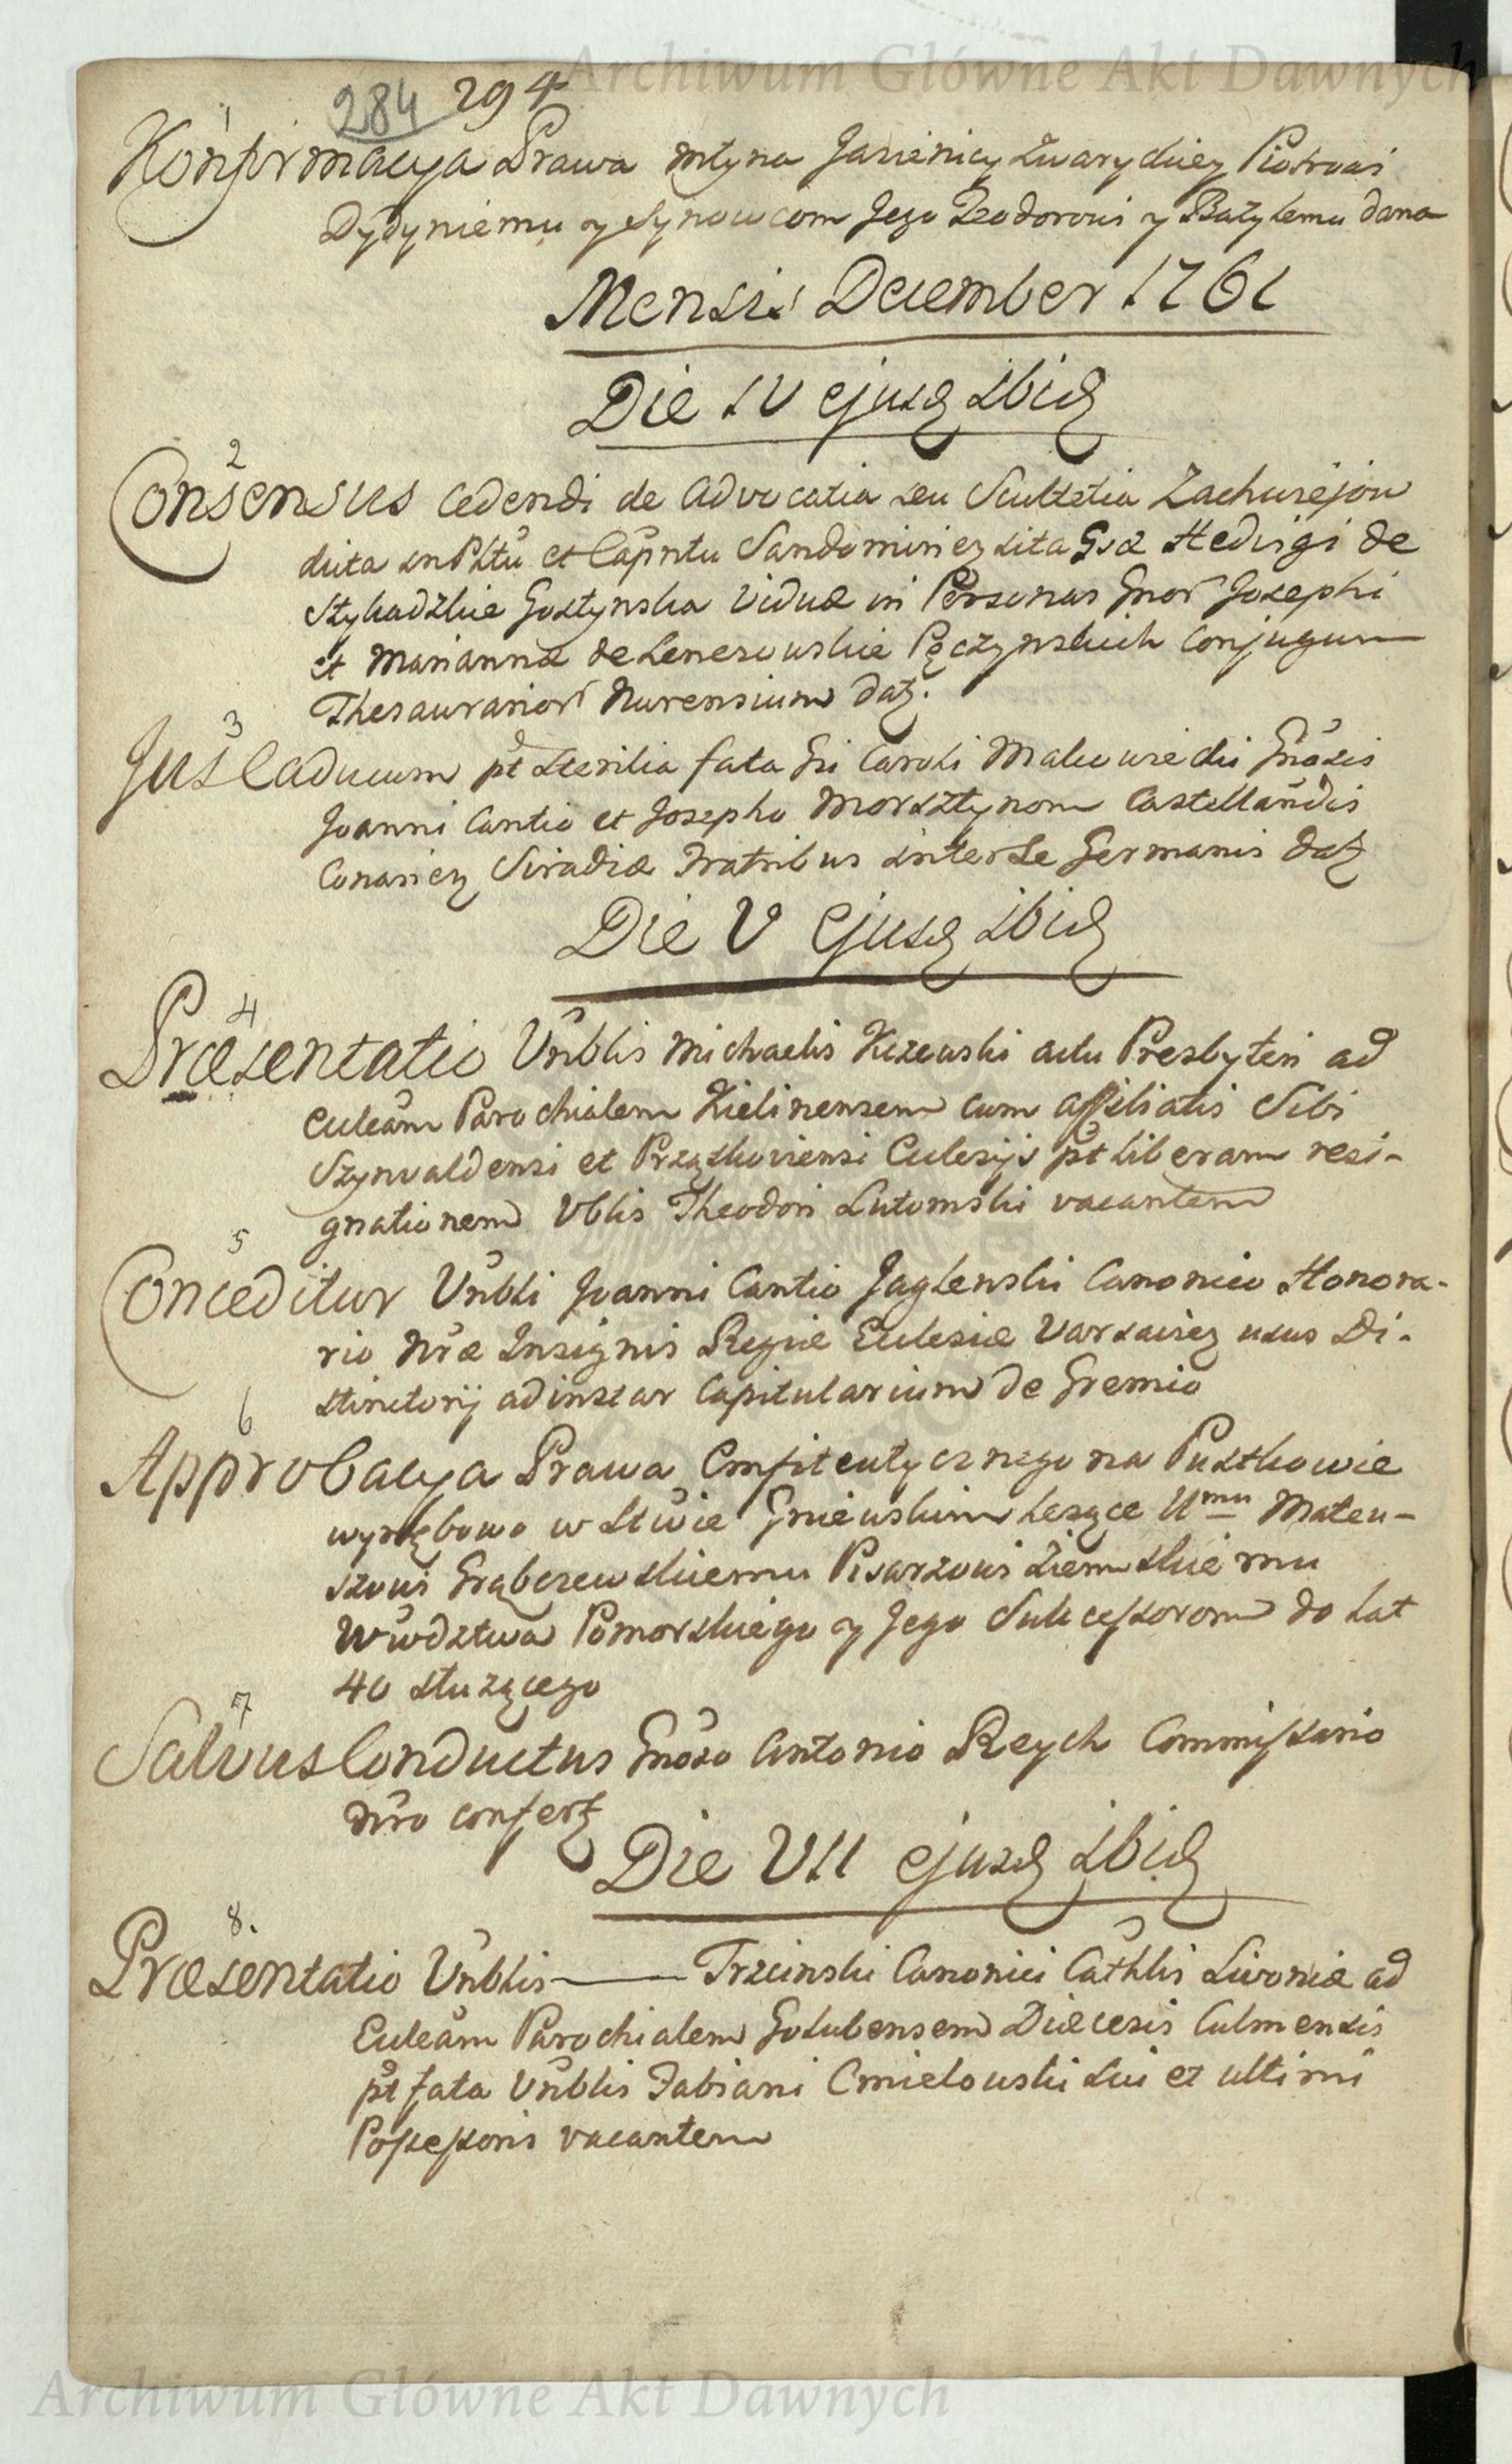 Archiwum Główne Akt Dawnych
284 294
1
Konfirmacya Prawa Młyna Jasienicy Zwaryckiey Piotrowi
Dydyniemu y Synowcom Jego Teodorowi y Bazylemu dana
Mensis December 1761
Die IV ejusd ibid
2
Consensus cedendi de Advocatia seu Scultetia Zachurejow
dicta in Pltu et Capntu Sandomirien sita Gsæ Hedvigi de
Gostynska Viduæ in Personas Gnor Josephi
et Mariannæ de Pęczynskich Conjugum
Thesaurarior Nurensium dat.
3
Jus Caducum pt sterilia fata Gi Caroli Gnosis
Joanni Cantio et Josepho Morsztynom Castellanidis
Conarien Siradiæ Fratribus inter se Germanis dat
Die V ejusd ibid
4
Præsentatio Vnblis Michaelis Kczewski actu Presbyteri ad
Eccleam Parochialem Kielinensem cum affiliatis Sibi
Szynvaldensi et Przęskoviensi Eccles̄ijs pt liberam resi-
gnationem Vblis Theodori Lutomski vacantem
5
Conceditur Vnbli Joanni Cantio Jaglenski Canonico Honora-
rio Nræ Insignis Regiæ Ecclesiæ Varsavien usus Di-
stinctorij ad instar Capitularium de Gremio
6
Approbacya Prawa Emfiteutycznego na Pustkowie
wyrębowo w Stwie Gniewskim leżące Umu Mateu-
szowi Grąbczewskiemu Pisarzowi Ziemskiemu
Wwdztwa Pomorskiego y Jego Sukcessorom do lat
40 służącego
7
Salvus Conductus Gnoso Antonio Reych Commissario
Nro confert
Die VII ejusd ibid
8.
Præsentatio Vnblis —— Trzcinski Canonici Cathlis Livoniæ ad
Eccleam Parochialem Golubensem Diæcesis Culmensis
pt fata Vnblis Fabiani Cmielowski sui et ultimi
Possessoris vacantem
Archiwum Główne Akt Dawnych